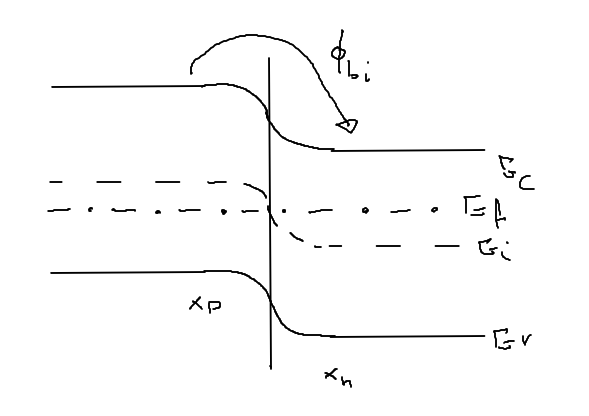 ϕbi
EC
Ef
Ei
xp
Ev
xn